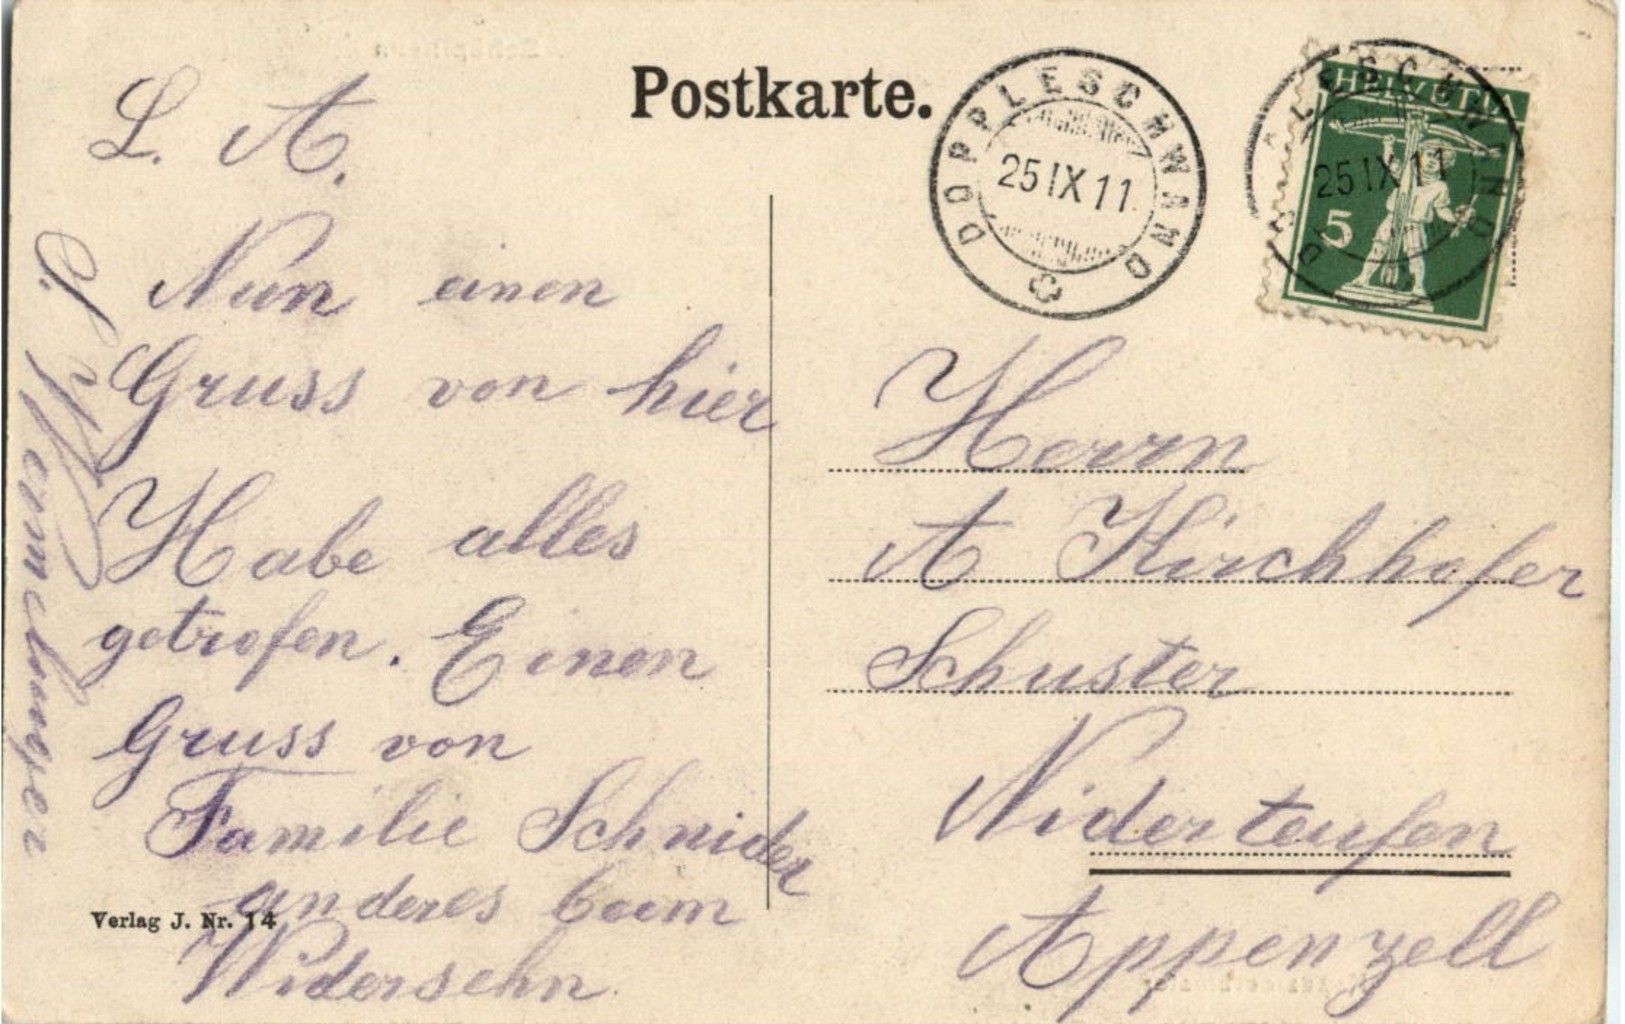 Postkarte.
DOPPLESCHWAND
25 IX 11.
HELVETIA
25 IX 11
5
L. A.
Nun einen
Gruss von hier
Habe alles
getrofen. Einen
Gruss von
Familie Schnider
anderes beim
Widersehn.
Verlag J. Nr. 14
Herrn
A Kirchhofer
Schuster
Niderteufen
Appenzell